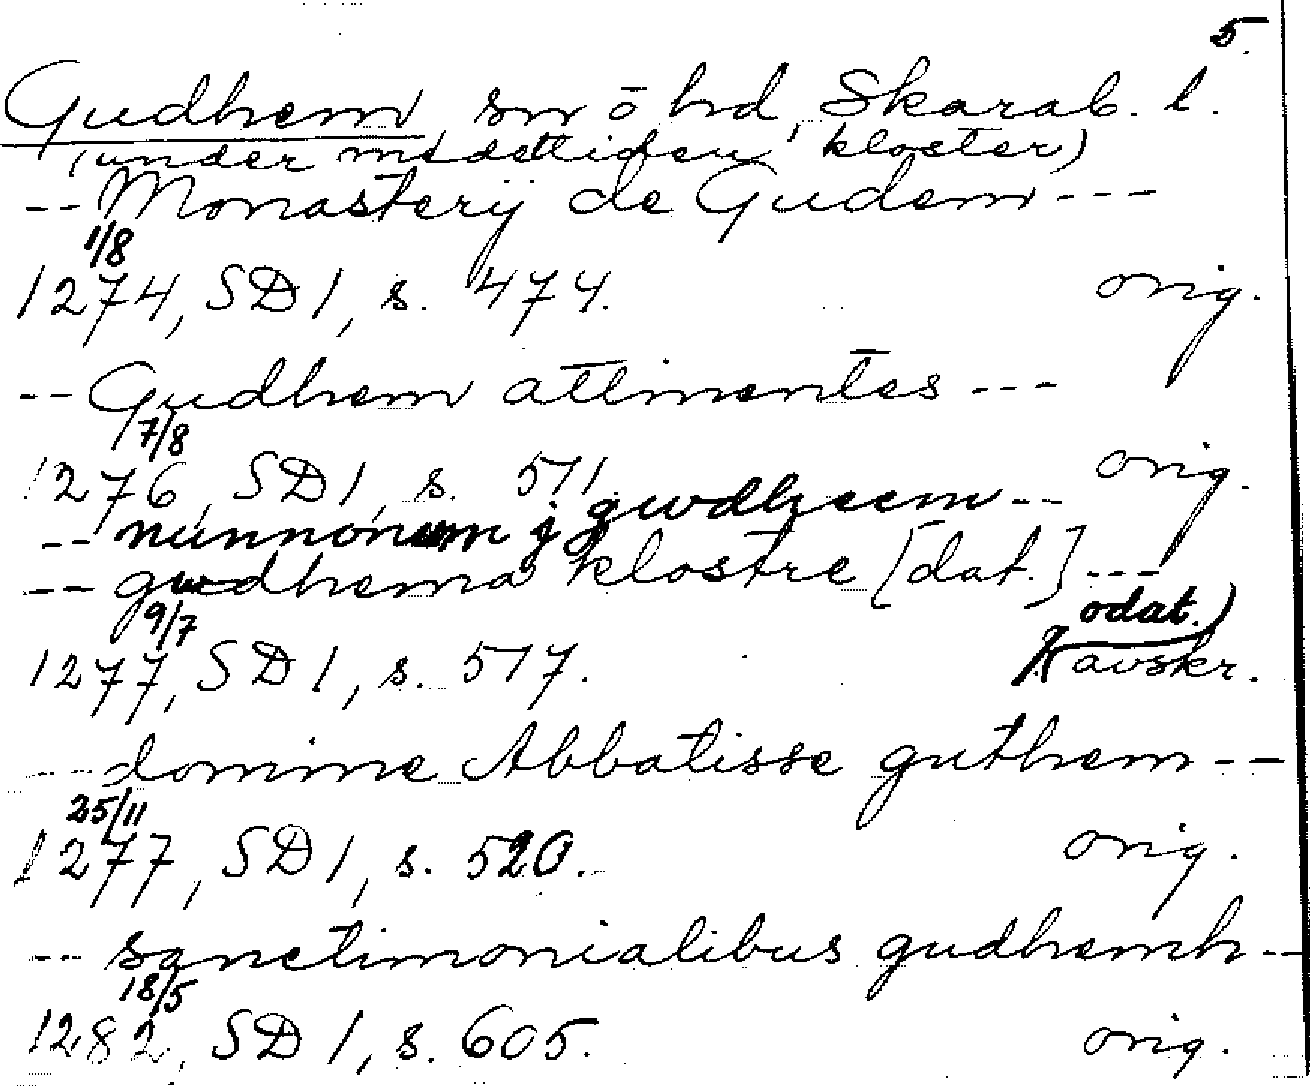 5.
Gudhem, sn o hd, Skarab. l.
(under medeltiden kloster)
-- Monasterij de Gudem ---
1/8
1274, SD 1, s. 474. orig.
-- Gudhem attinentes ---
7/8
1276, SD 1, s. 511 orig.
-- nunnonum j gwdheem --
-- gwdhema klostre [dat.] ---
9/7 odat.)
1277, SD 1, s. 517. avskr.
-- domine Abbatisse guthem --
25/11
1277, SD 1, s. 520. orig.
-- sanctimonialibus gudhemh --
18/5
1282, SD 1, s. 605. orig.